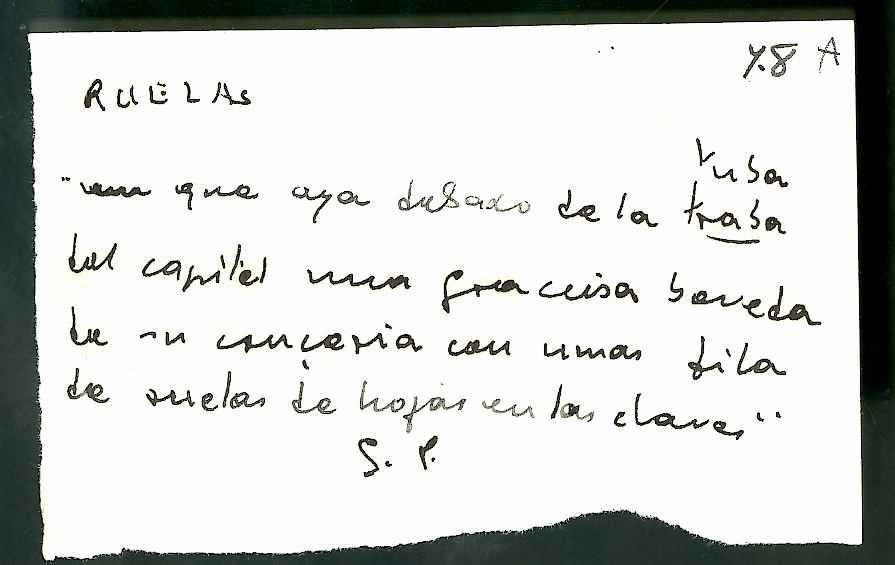 7.8 A
RUELAS
tuba
" que aya debaxo de la traba
del capitel una graciosa boveda
de su cruçeria con unas fila
de ruelas de hojas en las claves"
S. P.